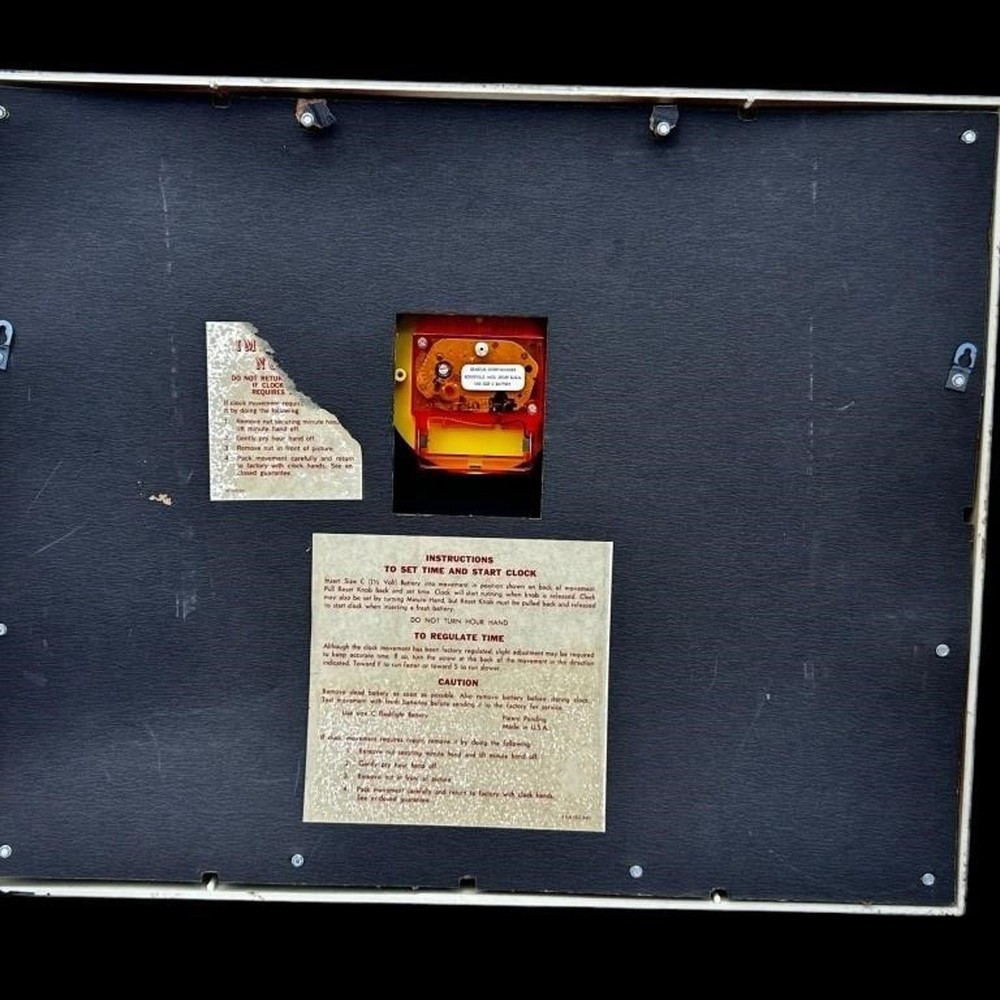 IM
N
DO NOT RETUR
IF CLOCK
REQUIRES
If clock movement requir
it by doing the following
1. Remove nut securing minute hand
lift minute hand off.
2. Gently pry hour hand off.
3. Remove nut in front of picture.
4. Pack movement carefully and return
to factory with clock hands. See en-
closed guarantee.
USE SIZE C BATTERY
INSTRUCTIONS
TO SET TIME AND START CLOCK
Insert Size C (1½ Volt) Battery into movement in position shown on back of movement.
Pull Reset Knob back and set time. Clock will start running when knob is released. Clock
may also be set by turning Minute Hand, but Reset Knob must be pulled back and released
to start clock when inserting a fresh battery.
DO NOT TURN HOUR HAND
TO REGULATE TIME
Although the clock movement has been factory regulated, slight adjustment may be required
to keep accurate time. If so, turn the screw at the back of the movement in the direction
indicated. Toward F to run faster or toward S to run slower.
CAUTION
Remove dead battery as soon as possible. Also remove battery before storing clock.
Test movement with fresh batteries before sending it to the factory for service.
Use size C flashlight Battery
Patent Pending
Made in U.S.A.
If clock movement requires repair, remove it by doing the following:
Remove nut securing minute hand and lift minute hand off.
2. Gently pry hour hand off.
3. Remove nut in front of picture.
4. Pack movement carefully and return to factory with clock hands.
See enclosed guarantee.